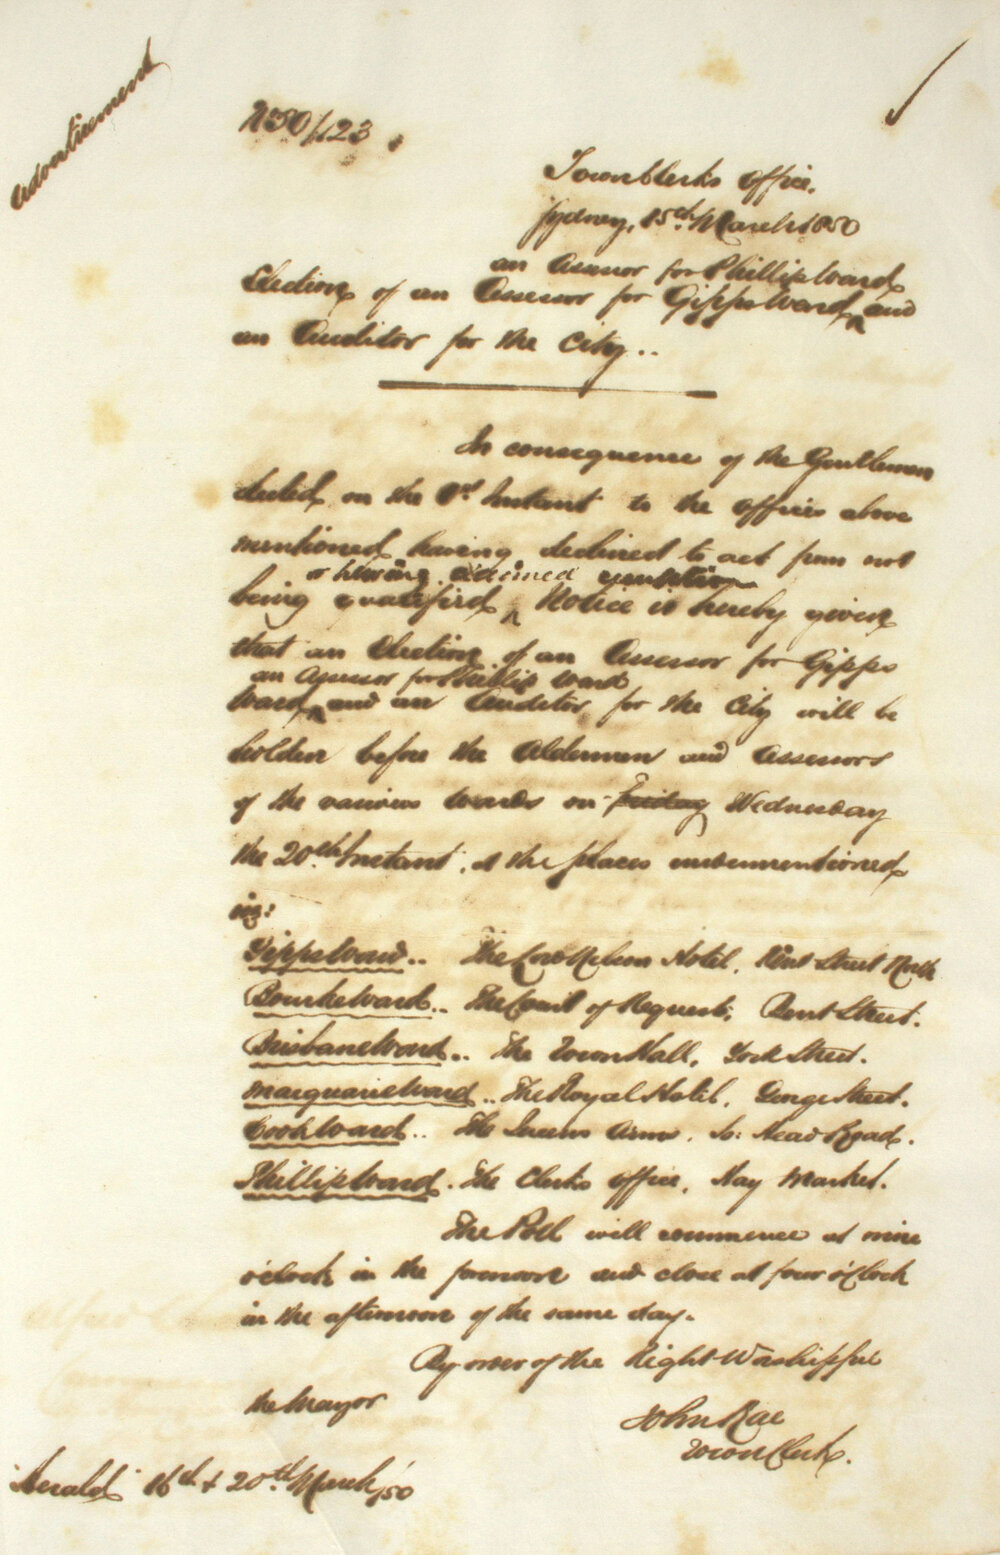 Advertisement
N50/123
Town Clerks Office,
Sydney, 15th March 1850
an Assessor for Phillip Ward
Election of an Assessor for Gipps Ward and
an Auditor for the City..
In consequence of the Gentlemen
elected on the 1st Instant to the offices above
mentioned having declined to act from not
or having claimed exemption
being qualified Notice is hereby given
that an Election of an Assessor for Gipps
an Assessor for Phillip Ward
Ward, and an Auditor for the City will be
holden before the Aldermen and Assessors
of the various Wards on Friday Wednesday
the 20th Instant, at the places undermentioned
viz:
Gipps Ward.. The Lord Nelson Hotel, Kent Street North
Bourke Ward.. The Court of Requests, Bent Street.
Brisbane Ward.. The Town Hall, York Street.
Macquarie Ward.. The Royal Hotel, George Street.
Cook Ward.. The Queens Arms, So: Head Road.
Phillip Ward. The Clerks office, Hay Market.
The Poll will commence at nine
o'clock in the forenoon and close at four o'Clock
in the afternoon of the same day.
By order of the Right Worshipful
the Mayor
John Rae
Town Clerk.
Herald 16th + 20th March/50